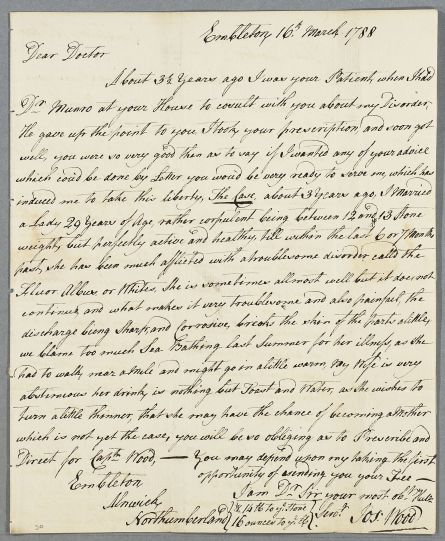 Embleton 16th March 1788
Dear Doctor
About 3½ Years ago I was your Patient, when I had
Dr. Munro at your House to cosult with you about my Disorder,
He gave up the point to you I took your prescription, and soon got
well, you were so very good then as to say if I wanted any of your advice
which could be done by Letter you wou'd be very ready to serve me, which has
induced me to take this liberty, The Case, about 3 Years ago, I Married
a Lady 29 Years of Age, rather corpulent being between 12 and 13 Stone
weight, but perfectly active and healthy, till within the last 6 or 7 Months
past, she has been much afflicted with a troublesome disorder call'd the
Fluor Albus or Whites, she is sometimes allmost well but it does not
continue, and what makes it very troublesome and also painfull, the
discharge being Sharp, and Corrosive, breaks the skin of the parts alittle,
we blame too much Sea Bathing last Summer for her illness, as she
had to walk near a Mile and might go in alittle warm, My Wife is very
abstimious her drink is nothing but Toast and Water, as She wishes to
turn alittle thinner, that she may have the chance of becoming a Mother
which is not yet the case, you will be so obliging as to Prescribe and
Direct for Captn. Wood, — You may depend upon my taking the first
opportunity of sending you your Fee
Embleton
I am Dr. Sir your most obt. Hble
Alnwick
Northumberland
14 lb to ye. Stone
16 ounces to ye. lb
Servt.
Jos. Wood